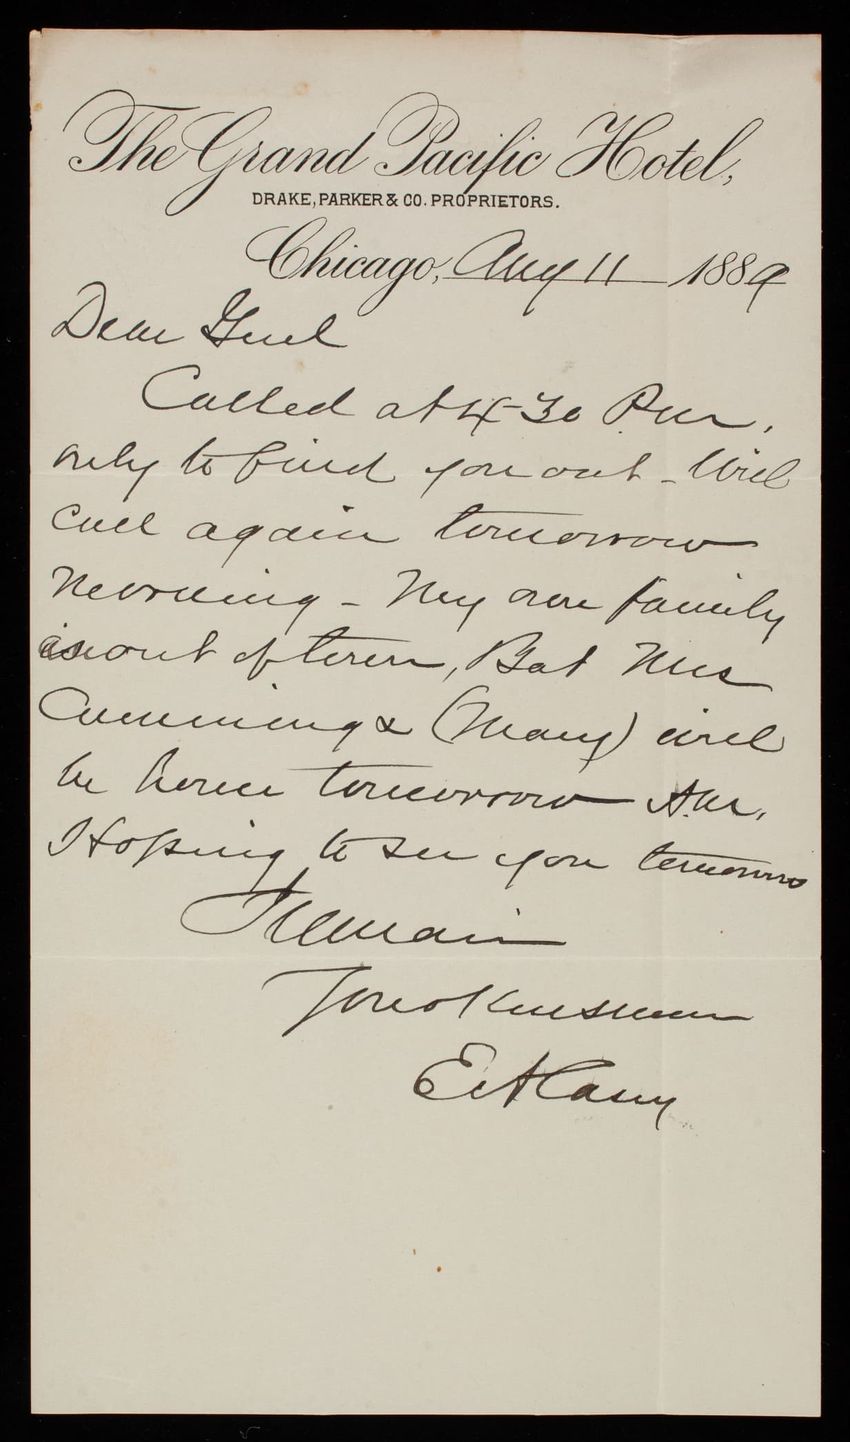 The Grand Pacific Hotel,
DRAKE, PARKER & CO. PROPRIETORS.
Chicago, Aug 11 1889
Dear Genl
Called at 4-30 P.M.,
only to find you out - Will
call again tomorrow
morning - My own family
is out of town, But Mrs
Cummings (Mary) will
be home tomorrow A.M.
Hoping to see you tomorrow
I remain
Your Kinsman
E A Casey